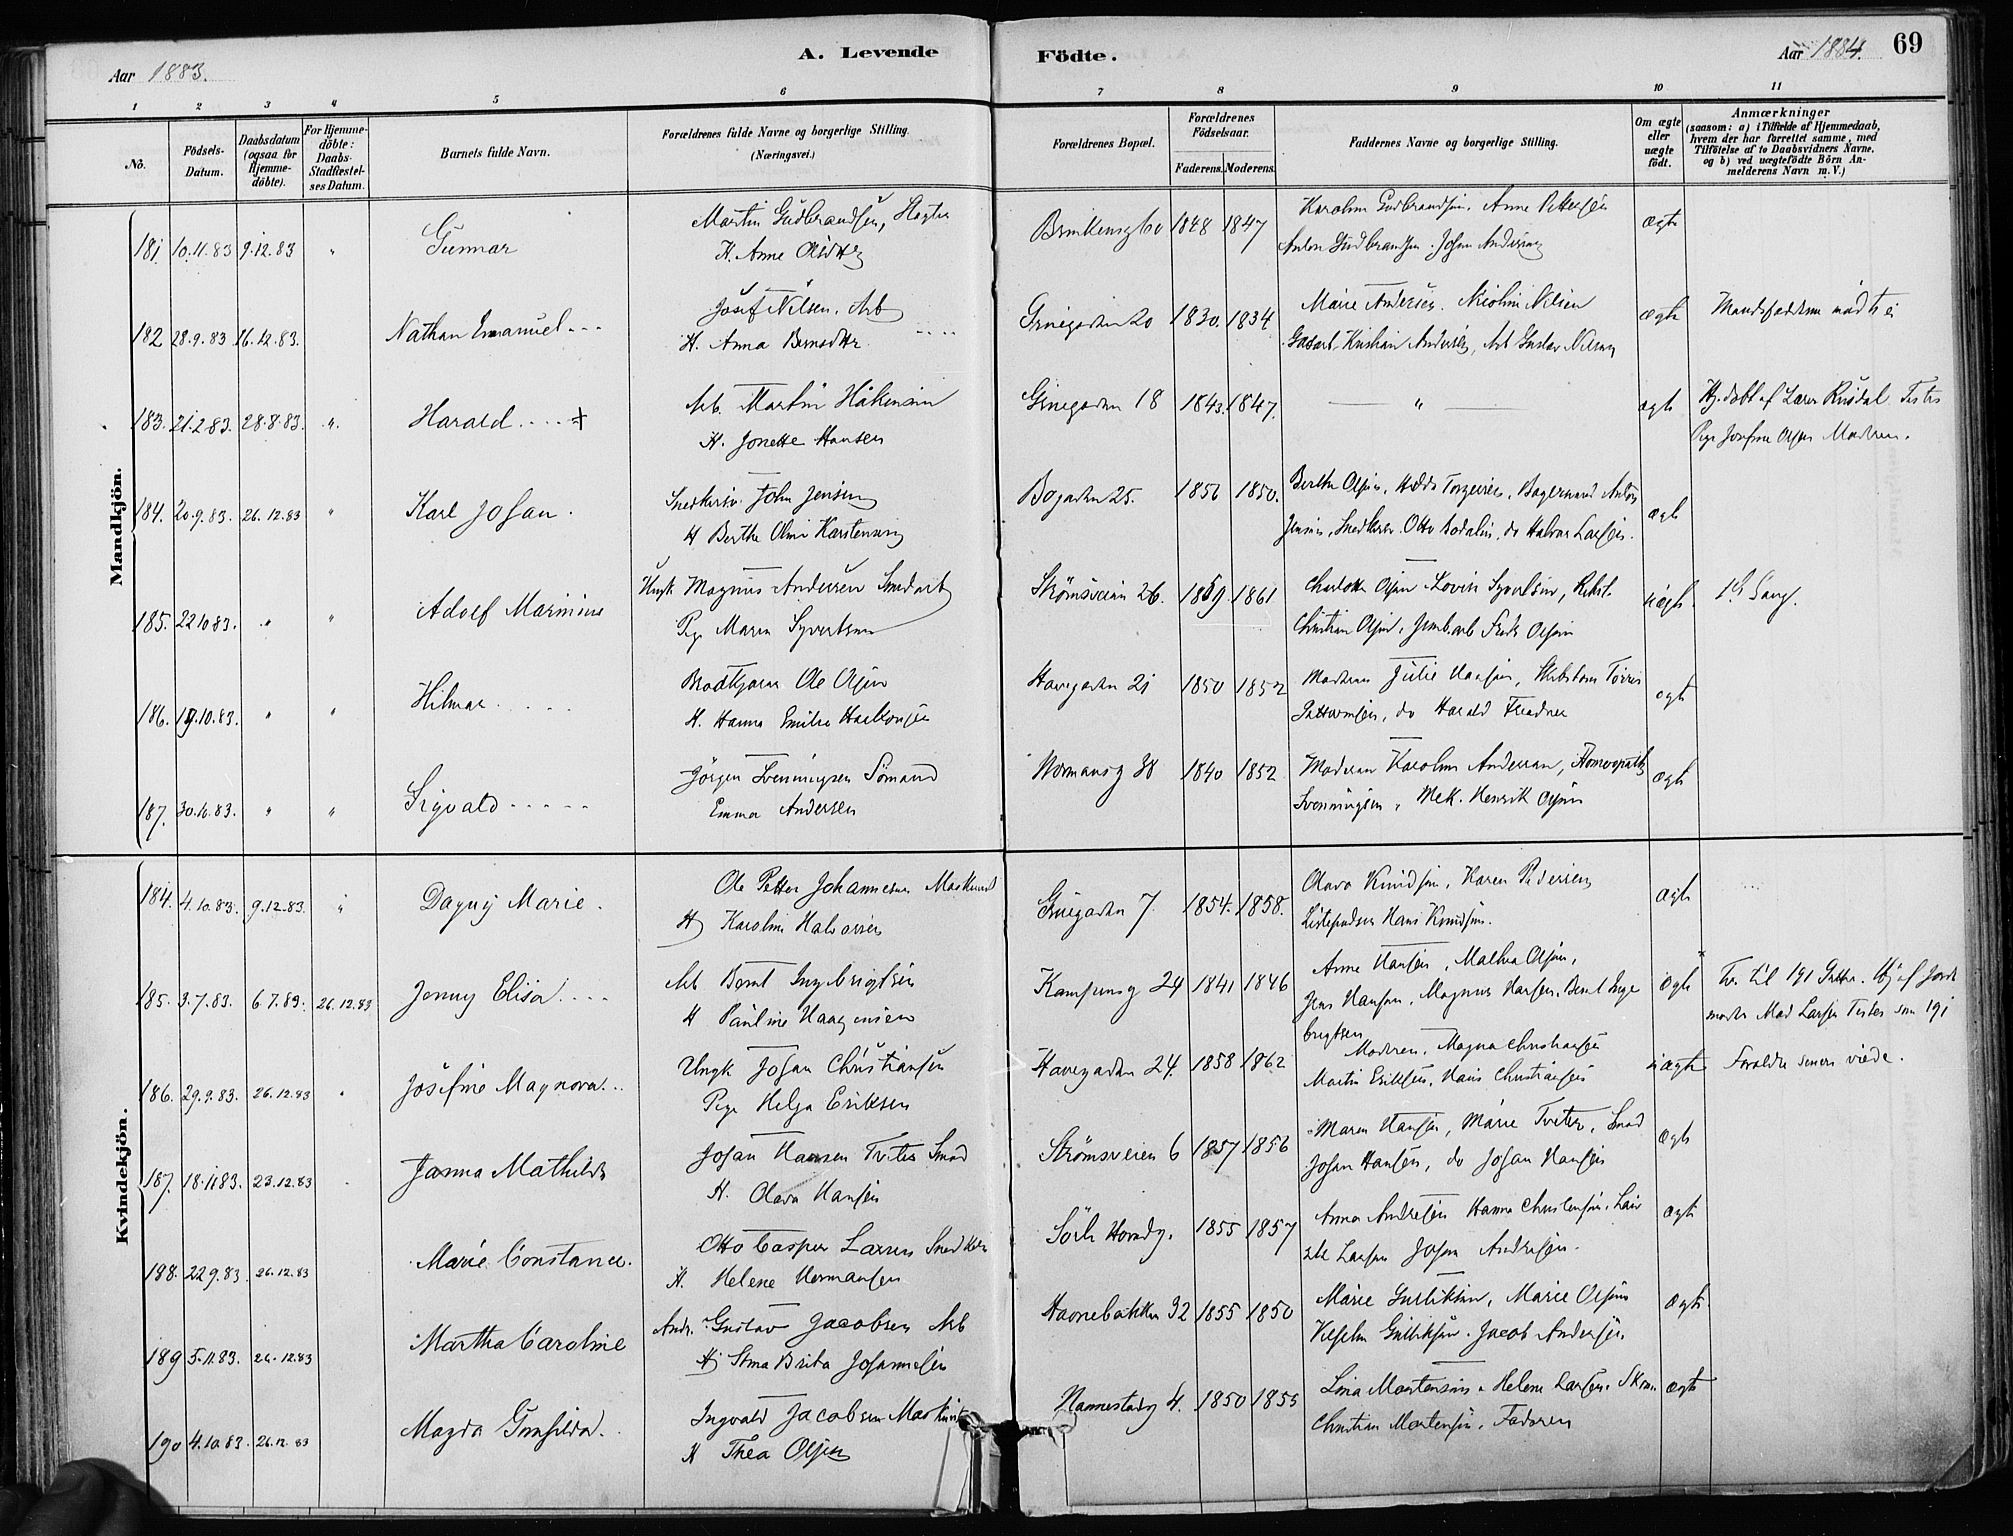 A. Levende Födte.
Aar 1883.
Aar 1884. 69
1 2 3 4 5 6 7 8 9 10 11
No.
Födsels-Datum.
Daabsdatum (ogsaa for Hjemme-döbte).
For Hjemme-döbte: Daabs-Stadfæstel-ses Datum.
Barnets fulde Navn.
Forældrenes fulde Navne og borgerlige Stilling. (Næringsvei.)
Forældrenes Bopæl.
Forældrenes Födselsaar.
Faderens. Moderens.
Faddernes Navne og borgerlige Stilling.
Om ægte eller uægte födt.
Anmærkninger
(saasom: a) i Tilfælde af Hjemmedaab, hvem der har forrettet samme, med Tilföielse af to Daabsvidners Navne, og b) ved uægtefödte Börn An-melderens Navn m. V.)
Mandkjön.
181. 10.11.83 9.12.83 " Gunnar
Martin Gudbrandsen,
H. Anne
1848 1847
Anne Pettersen
Anton Gudbrandsen. Johan
ægte
182 28.9.83 16.12.83. Nathan Emanuel
Josef Nilsen. Arb
H. Anna
Grnegaden 20 1830. 1834
Marie Andersen.
Kristian Andersen, Arb Gustav Nilsen
ægte
183. 21.2.83. 28.8.83. ". Harald +
Arb. Martin Håkensen
H. Jonette Hansen
Grnegaden 18 1843. 1847.
"
ægte
Hj. döbt af Lærer
Pige Josefine Olsen Modren.
184. 20.9.83. 26.12.83 " Karl Johan.
John Jensen
H Berthe Karstensen
Bogaden 25. 1856 1850.
Berthe Olsen,
Jensen, Snedkersv. Otto Bodalen, do Halvor Larsen.
ægte
185. 22 10 83. " " Adolf Marinius
Ungk Magnus Andersen Smedarb
Pige Maren Syvertsen
Strømsveien 26. 1859. 1861
Charlotte Olsen Lovise Syvertsen,
Christian Olsen, Jernb.arb Fredr Olsen
uægte.
1ste Gang.
186. 19.10.83. " " Hilmar
Ole Olsen
H. Hanna Emilie Haakonsen
Havegaden 21 1850 1852
Modren Julie Hansen,
do Harald
ægte
187. 30.10.83. " " Sigvald
Jörgen Svenningsen Sömand
Emma Andersen
Normansg 38 1840 1852
Moderen Karoline Andersen, Homoopath
Svenningsen, Mek. Henrik Olsen
ægte
Kvindekjön.
184. 4.10.83. 9.12.83. " Dagny Marie.
Ole Petter Johannesen
H Karoline Halvorsen
Gruegaden 7. 1854. 1858.
Olava Knudsen, Karen Pedersen
Hans Knudsen.
ægte
185. 3.7.83. 6.7.83. 26.12.83 Jenny Elisa
Arb Bernt Ingebrigtsen
H Pauline
Kampensg 24 1841 1846
Anne Hansen, Mathea Olsen,
Jens Hansen, Magnus Hansen. Bernt Inge
brigtsen
ægte
Tv. til 191 Hj af Jord
moder Mad Larsen Testes som 191
186. 29.9.83. 26.12.83 Josefine Magnora
Ungk Johan Christiansen
Pige Helga Eriksen
Havegaden 24. 1858 1862
Modren, Magna Christiansen
Martin Eriksen, Hans Christiansen
uægte
Foreldre senere viede.
187. 18.11.83. 23.12.83 Janna Mathilde
Johan Hansen Tveter Smed
H. Olava Hansen
Strømsveien 6 1857 1856
Maren Hansen, Marie Tveter, Smed
Johan Hansen, do Johan Hansen
ægte
188. 22.9.83. 26.12.83 Marie Constance.
Otto Casper Larsen Snedker
H. Helene Hermansen
1855 1857
Anna Andresen Hanna Christensen.
Larsen Johan Andresen.
ægte
189 5.11.83. 26.12.83 Martha Caroline
Andr. Gustav Jacobsen Arb
H. Stina Brita Johannesen
Havnebakken 32 1855 1850
Marie Gulliksen, Marie Olsen
Gulliksen. Jacob Andersen.
ægte
190 4.10.83. 26.12.83 Magda Gunhilda.
Ingvald Jacobsen
H Thea Olsen
Nannestadg 4. 1850 1855
Lina Mortensen. Helene Larsen.
Christian Mortensen. Faderen
ægte